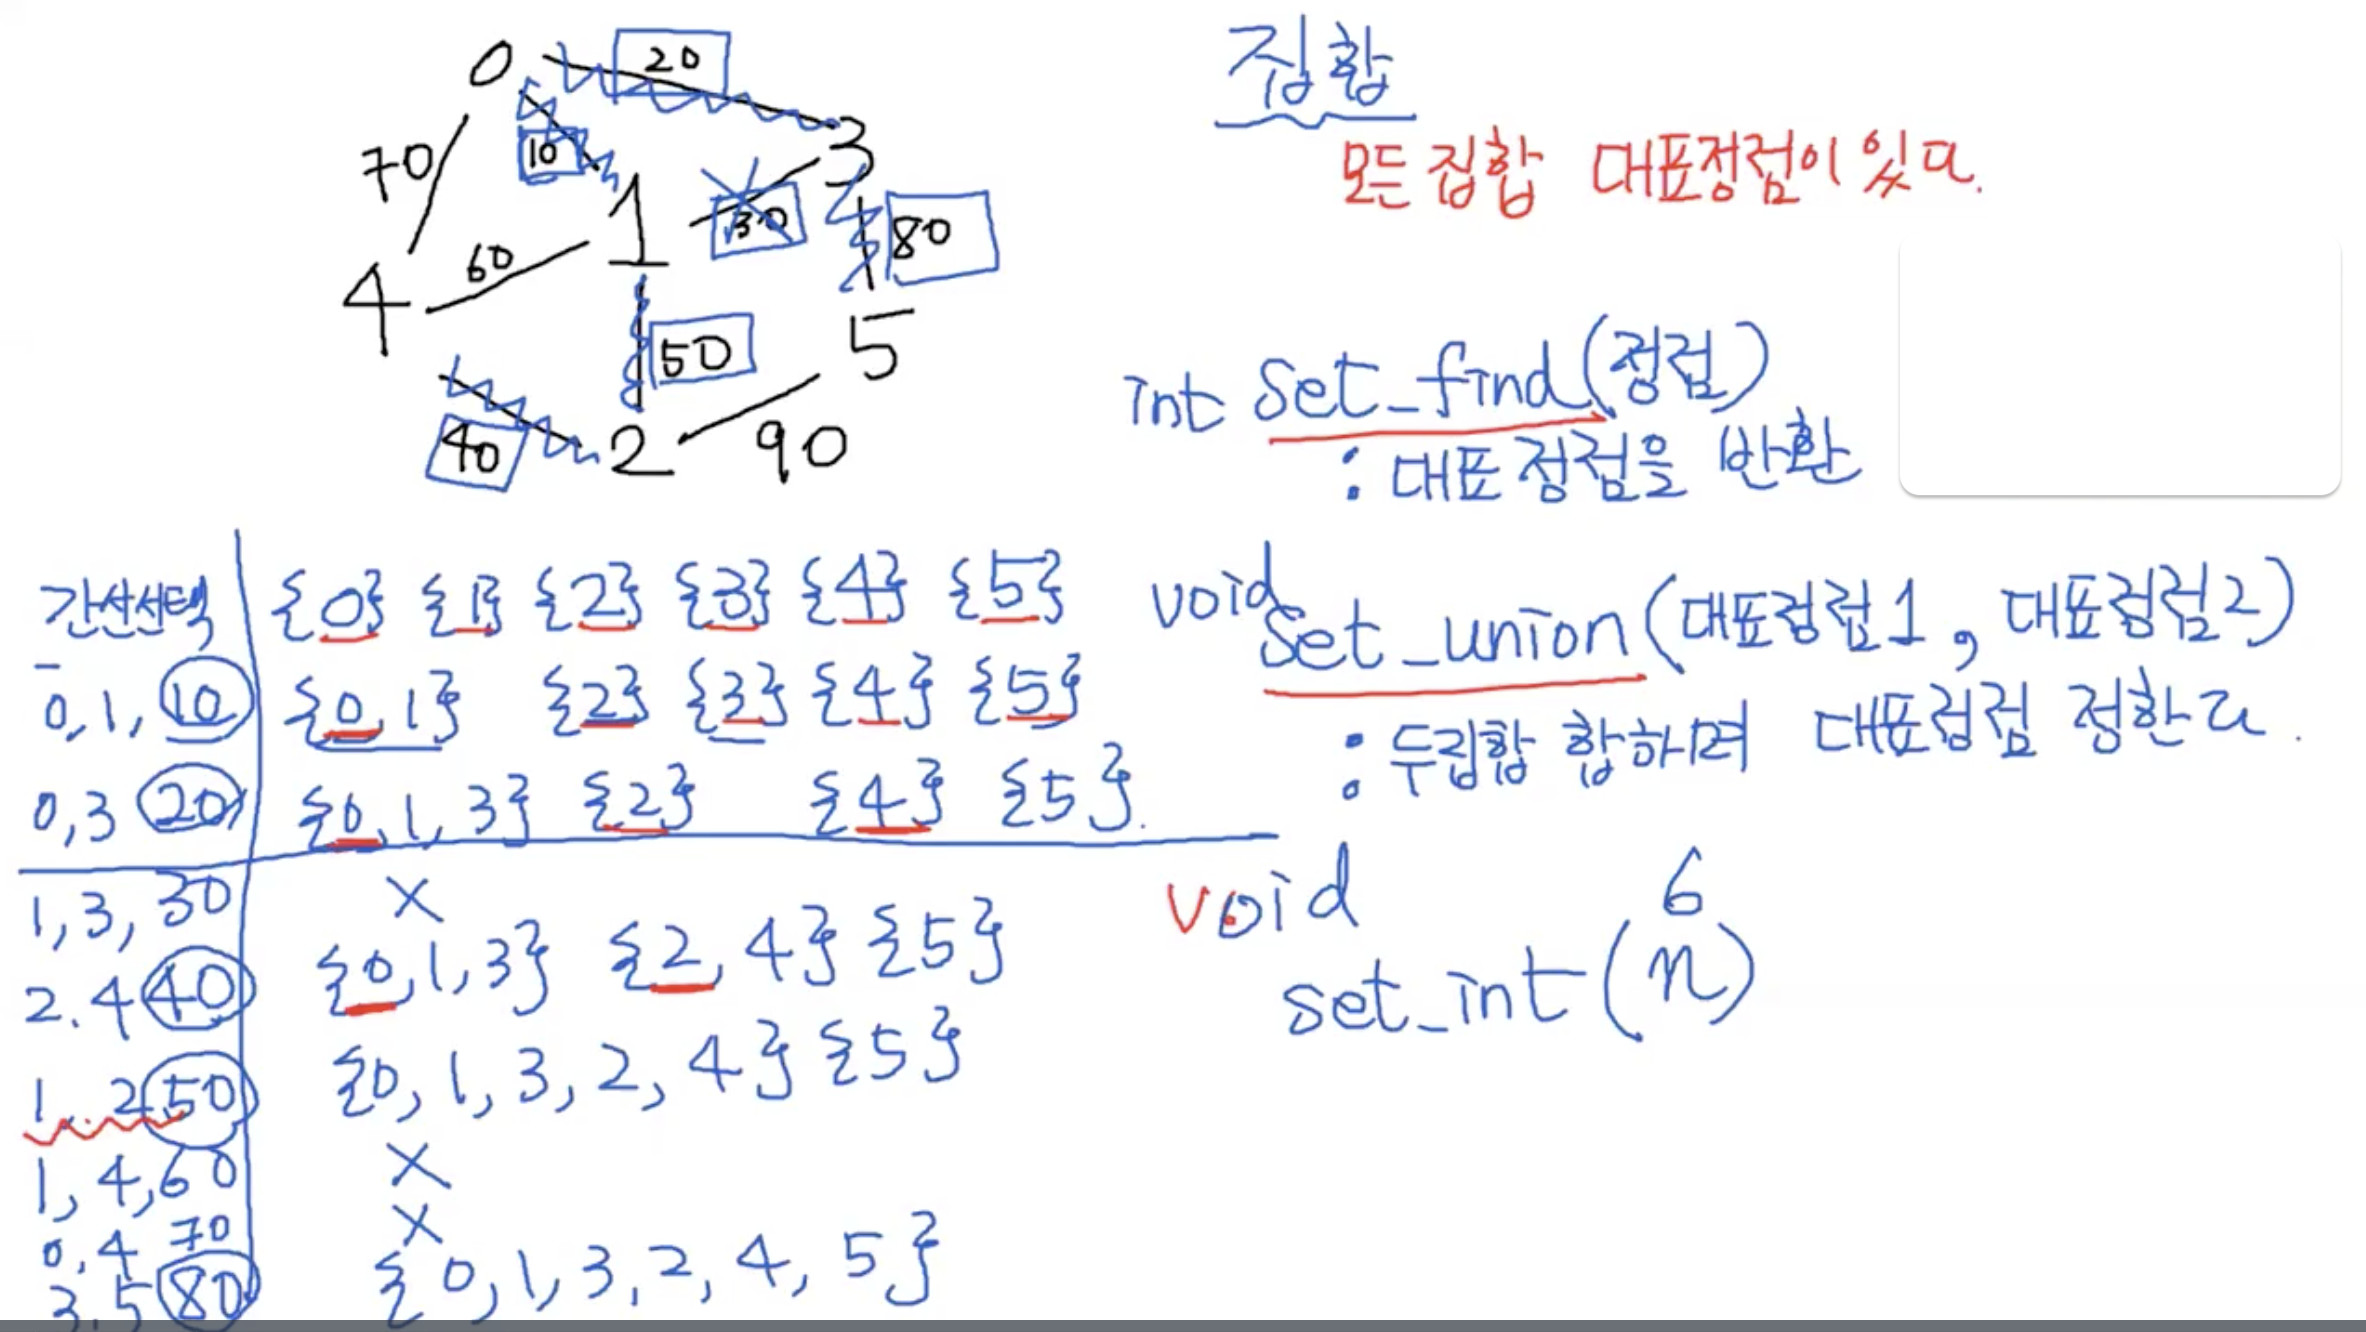 0
20
10
3
70
1
30
80
60
4
50
5
40
2
90
집합
모든 집합 대표정점이 있다.
int set_find(정점)
: 대표정점을 반환
void set_union(대표정점1, 대표정점2)
: 두집합 합하며 대표정점 정한다.
void
6
set_int(n)
간선선택 {0} {1} {2} {3} {4} {5}
0,1,10 {0,1} {2} {3} {4} {5}
0,3 20 {0,1,3} {2} {4} {5}.
1,3,30 X
2.4 40 {0,1,3} {2,4} {5}
1, 2 50 {0,1,3,2,4} {5}
1,4,60 X
0,4 70 X
3.5 80 {0,1,3,2,4,5}